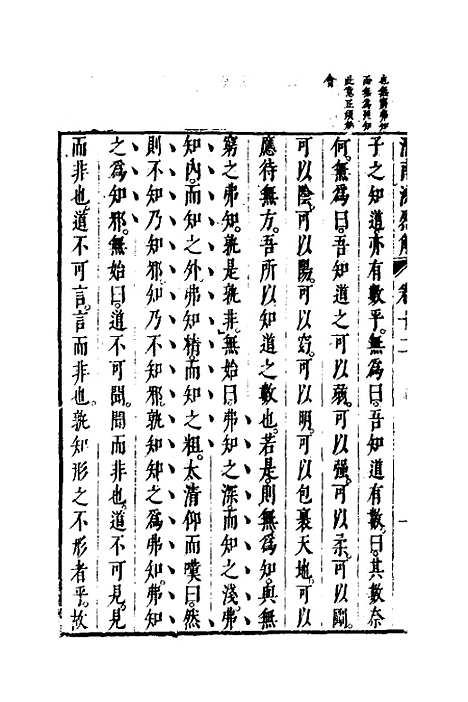 也無窮弗知
而無爲 知
此意正須
會
淮南鴻烈解 卷十二 一
子之知道亦有數乎。無爲曰。吾知道有數。曰。其數奈
何。無爲曰。吾知道之可以弱。可以强。可以柔。可以剛。
可以陰。可以陽。可以窈。可以明。可以包裹天地。可以
應待無方。吾所以知道之數也。若是。則無爲知。與無
窮之弗知。孰是孰非。無始曰。弗知之深。而知之淺。弗
知內。而知之外。弗知精。而知之粗。太清仰而嘆曰。然
則不知乃知邪。知乃不知邪。孰知知之爲弗知。弗知
之爲知邪。無始曰。道不可聞。聞而非也。道不可見。見
而非也。道不可言。言而非也。孰知形之不形者乎。故